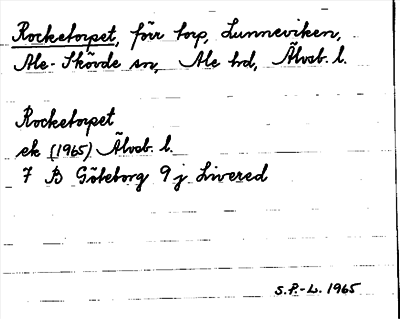 Rocketorpet, förr torp, Lunneviken,
Ale-Skövde sn, Ale hd, Älvsb. l.
Rocketorpet
ek (1965) Älvsb. l.
7 B Göteborg 9 j Livered
S.P.-L. 1965